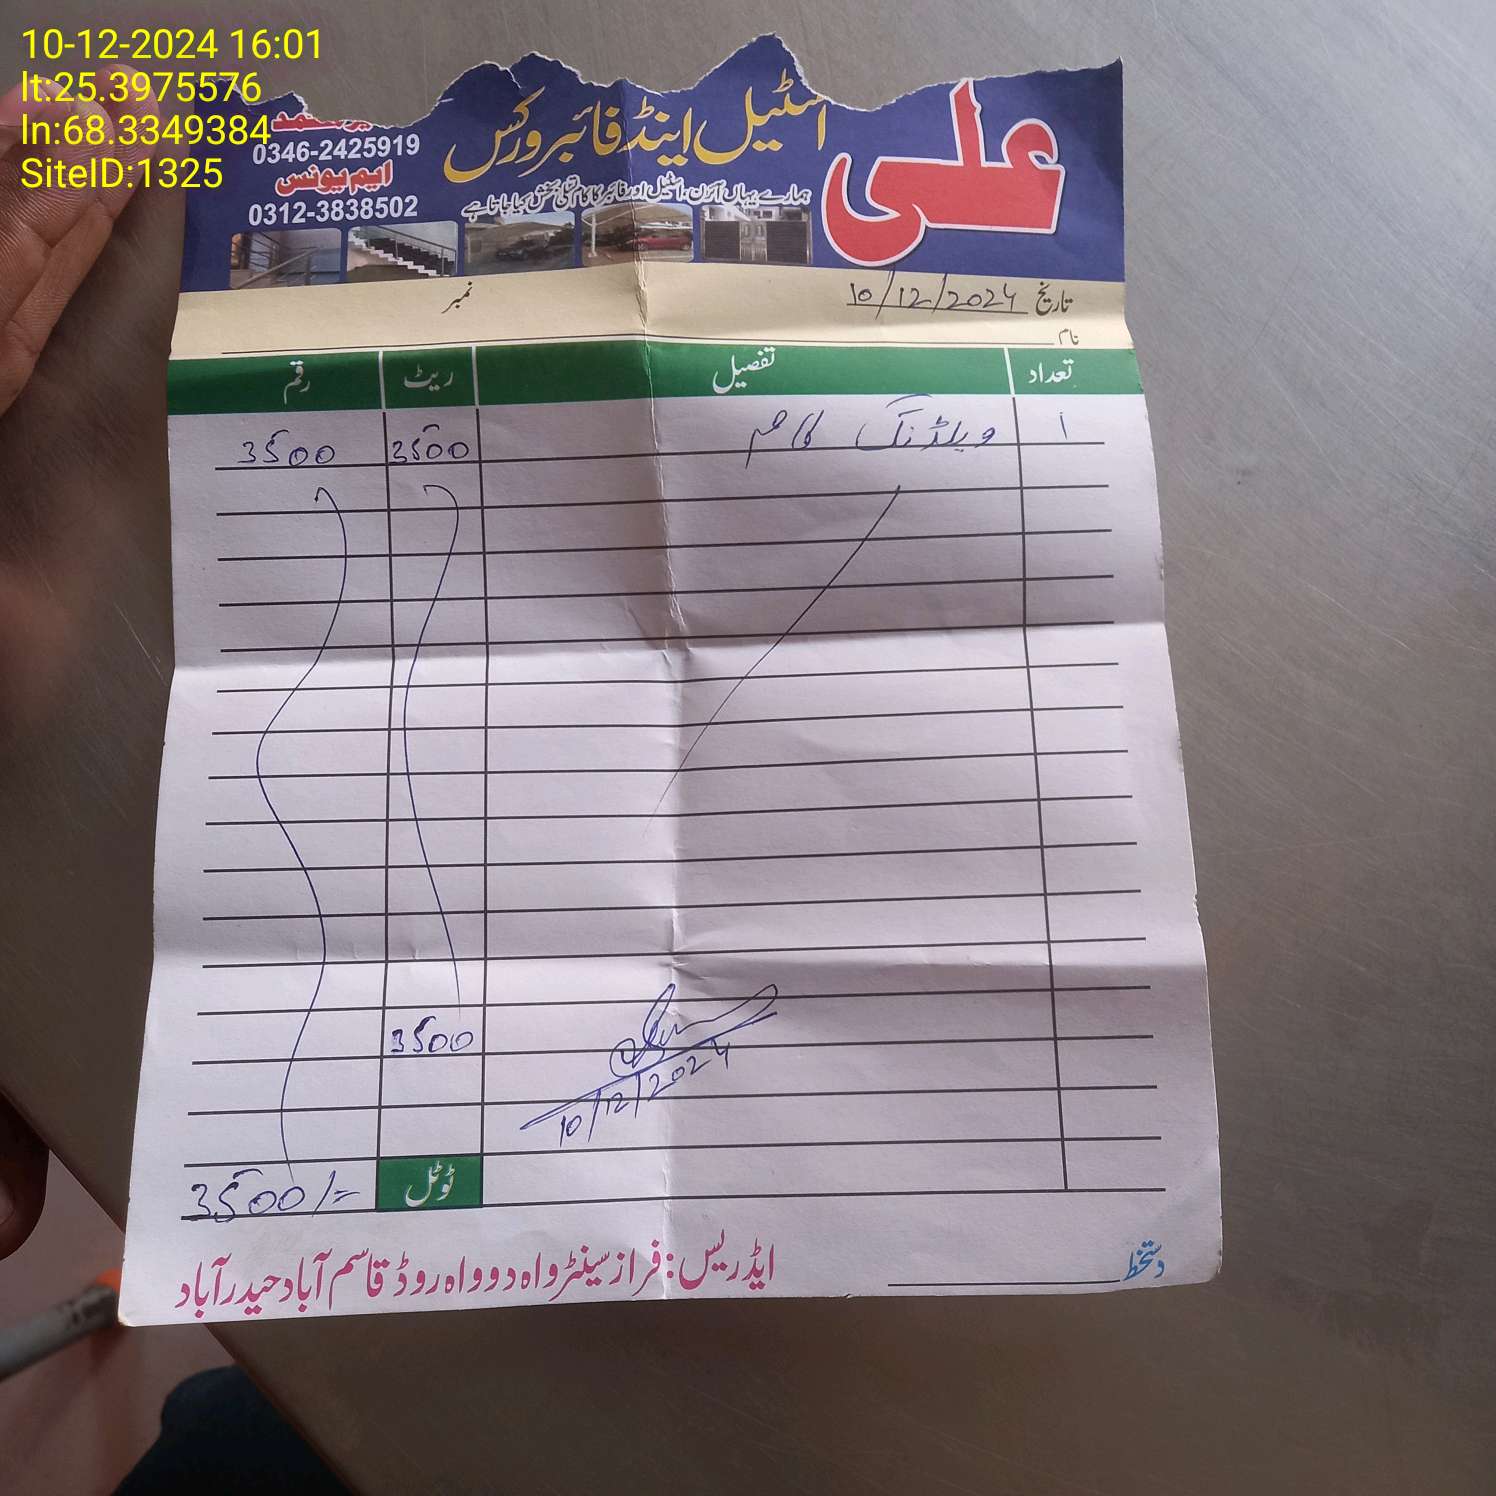 10-12-2024 16:01
lt:25.3975576
ln:68.3349384
SiteID:1325
علی
اسٹیل اینڈ فائبر ورکس
ہمارے یہاں آئرن، اسٹیل اور فائبر کا کام تسلی بخش کیا جاتا ہے
0346-2425919
ایم یونس
0312-3838502
تاریخ 10/12/2024 نمبر
نام
تعداد تفصیل ریٹ رقم
1 ویلڈنگ کام 3500 3500
3500
10/12/2024
ٹوٹل 3500/=
دستخط
ایڈریس: فراز سینٹر واہ دو واہ روڈ قاسم آباد حیدرآباد